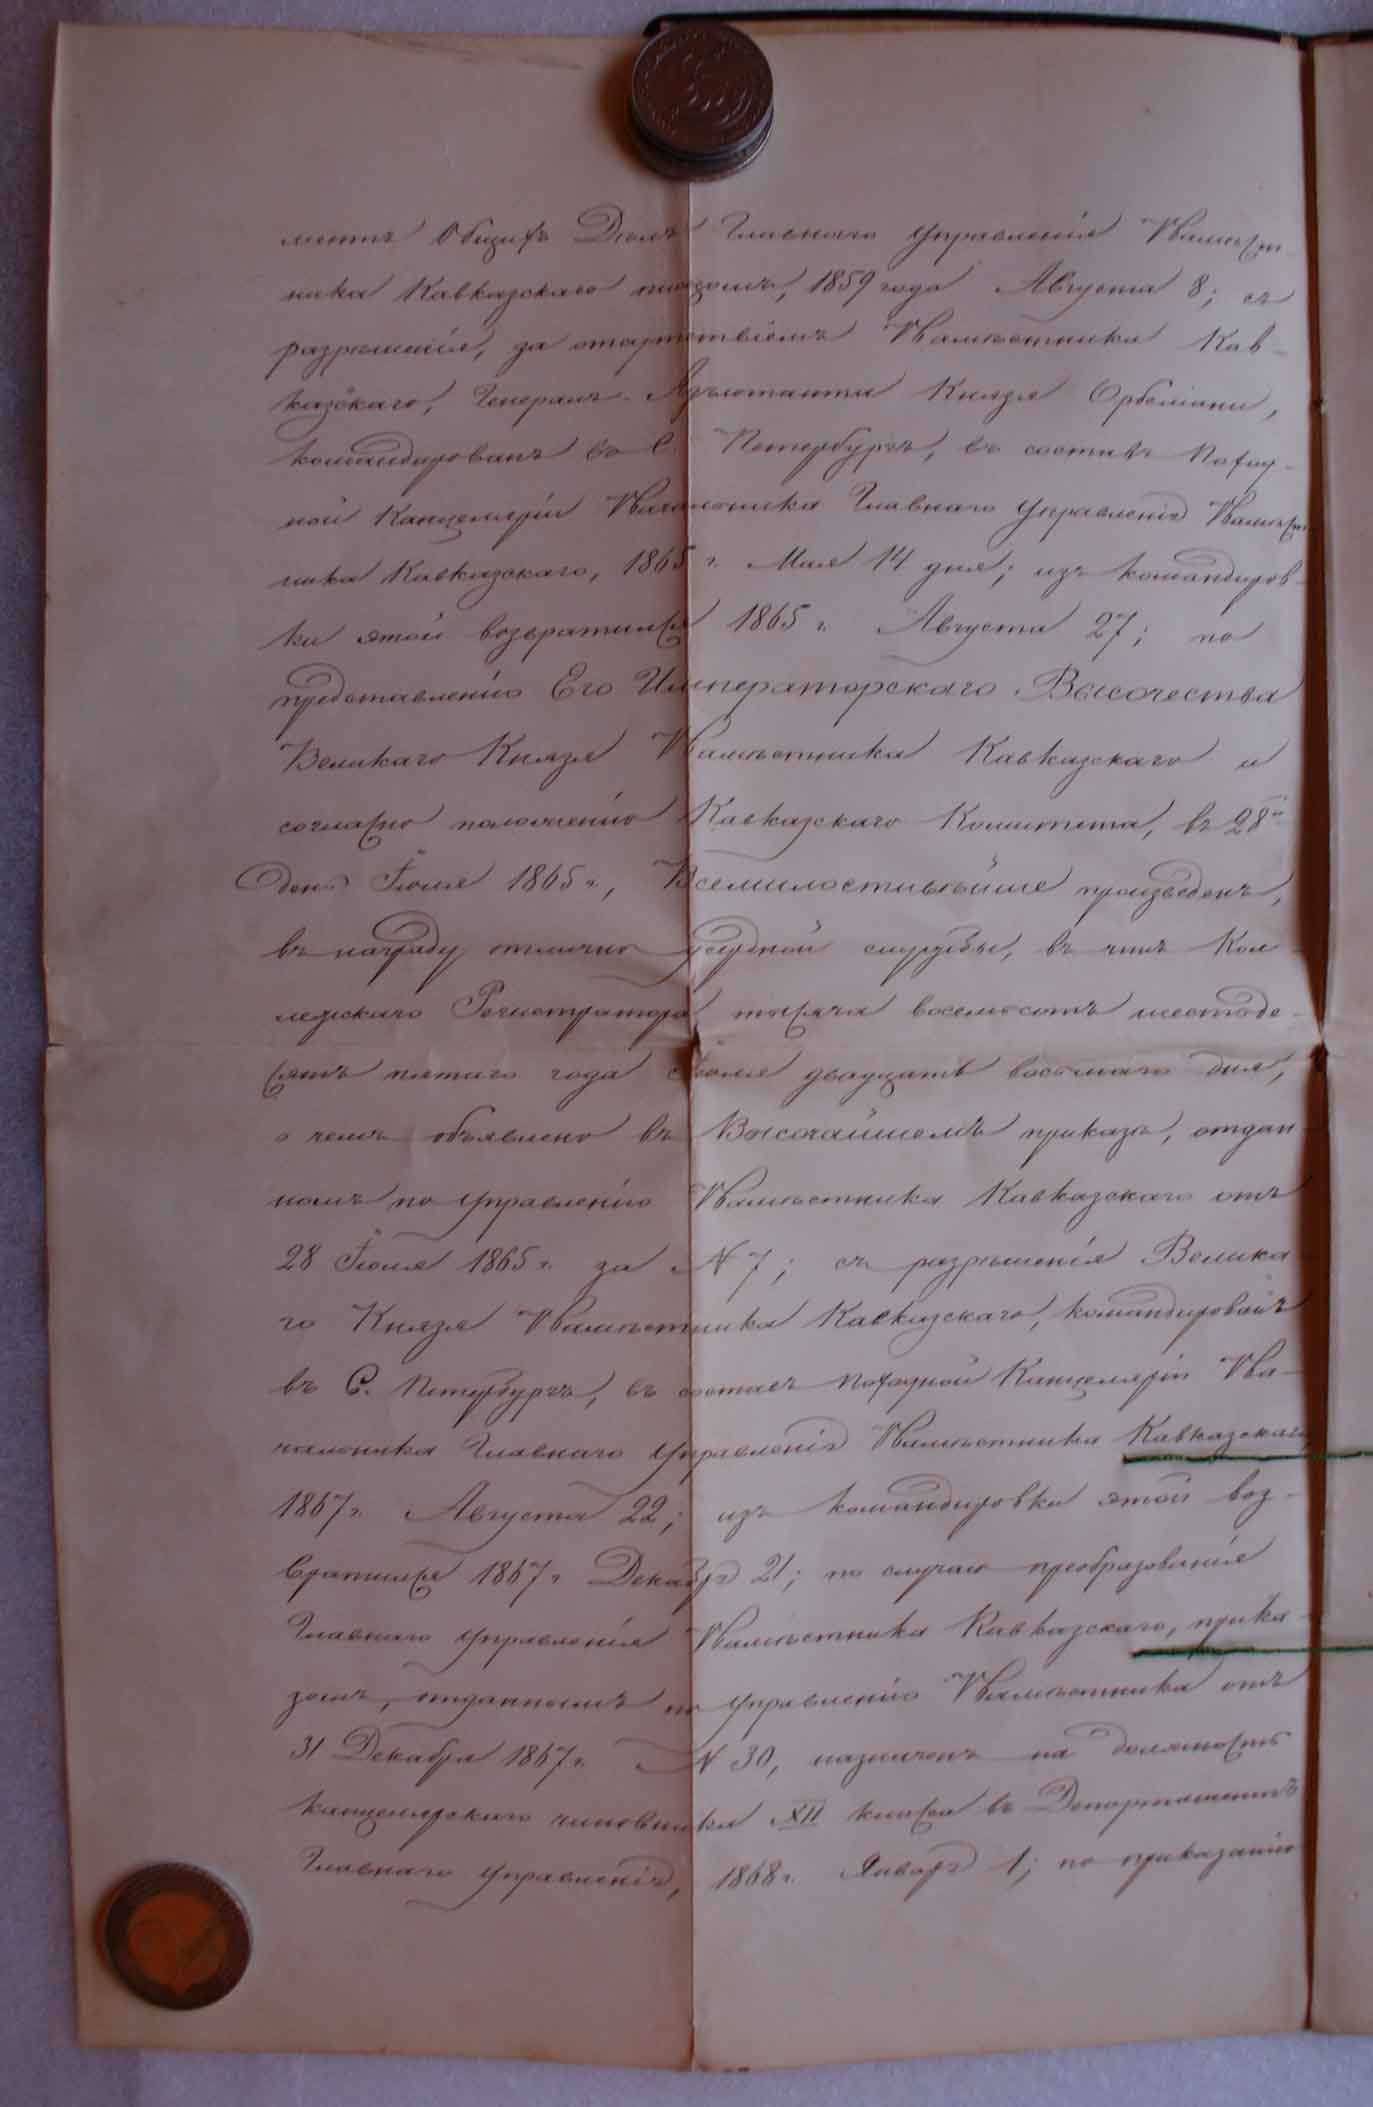 ментъ Общихъ Делъ Главнаго Управленія Намѣст-
ника Кавказскаго писцомъ, 1859 года Августа 8; съ
разрѣшенія, за отсутствіемъ Намѣстника Кав-
казскаго, Генералъ-Адъютанта Князя Орбеліани,
командированъ въ С. Петербургъ, въ составъ Поход-
ной Канцеляріи Начальника Главнаго Управленія Намѣст-
ника Кавказскаго, 1865 г. Мая 14 дня; изъ командиров-
ки этой возвратился 1865 г. Августа 27; по
представленію Его Императорскаго Высочества
Великаго Князя Намѣстника Кавказскаго и
согласно положенію Кавказскаго Комитета, въ 28й
день Іюля 1865 г., Всемилостивѣйше произведенъ,
въ награду отлично усердной службы, въ чинъ Кол-
лежскаго Регистратора тысяча восемьсотъ шестьде-
сятъ пятаго года Іюля двадцать восьмаго дня,
о чемъ объявлено въ Высочайшемъ приказѣ, отдан-
номъ по Управленію Намѣстника Кавказскаго отъ
28 Іюля 1865 г. за № 7; съ разрѣшенія Велика-
го Князя Намѣстника Кавказскаго, командированъ
въ С. Петербургъ, въ составъ Походной Канцеляріи На-
чальника Главнаго Управленія Намѣстника Кавказскаго,
1867 г. Августа 22; изъ командировки этой воз-
вратился 1867 г. Декабря 21; по случаю преобразованія
Главнаго Управленія Намѣстника Кавказскаго, прика-
зомъ, отданнымъ по Управленію Намѣстника отъ
31 Декабря 1867 г. № 30, назначенъ на должность
канцелярскаго чиновника XII класса въ Департаментъ
Главнаго Управленія, 1868 г. Января 1; по приказанію